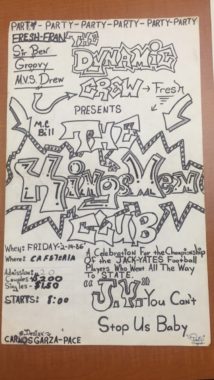 PARTY-PARTY-PARTY-PARTY-PARTY-PARTY
FRESH-FRAN
Sir Ben
Groovy
MVS. Drew
THE
DYNAMIC
CREW → Fresh
PRESENTS
M.C
Bill
THE
KingsMen
CLUB
When: FRIDAY-2-14-86
Where: CAFETERIA
Admission:
Couples $2.00
Singles - $1.50
STARTS: 8:00
A Celebration For the Championship
Of the JACK-YATES Football
Players Who Went All The Way
To STATE.
"J.Y." You Can't
Stop Us Baby
CARLOS GARZA-PACE